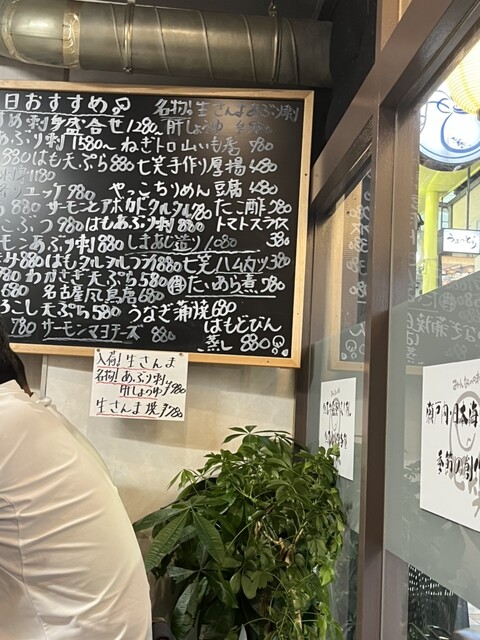 日おすすめ
名物!生さんまあぶり刺
すめ刺身盛合せ1280 肝しょうゆ 980
あぶり刺1580〜 ねぎトロ山いも巻 780
880 はも天ぷら880 七笑手作り厚揚480
1180
リエッケ980 やっこちりめん豆腐480
980 サーモンとアボカドタルタル980 たこ酢780
こぶつ980 はもあぶり刺880 トマトスライス
モンあぶり刺880 しまあじ造り1080 380
はもタルタルフライ880 七笑ハムカツ380
980 わかさぎ天ぷら580 たいあら煮780
680 名古屋風鳥唐680
ろこし天ぷら580 うなぎ蒲焼680
780 サーモンマヨチーズ880 はもどびん
蒸し880
入荷!生さんま
名物!あぶり刺
肝しょうゆ 980
生さんま焼き780
瀬戸内・日本海
季節の